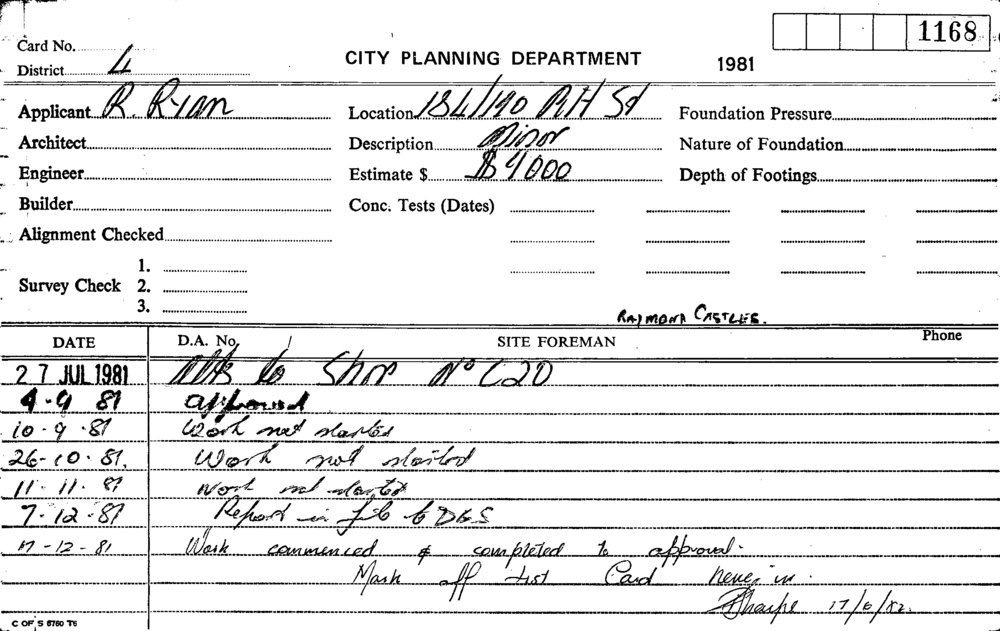 1168
Card No.
District 4
CITY PLANNING DEPARTMENT
1981
Applicant R. Ryan
Location 184/190 Pitt St
Foundation Pressure
Architect
Description Minor
Nature of Foundation
Engineer
Estimate $ $4000
Depth of Footings
Builder
Conc. Tests (Dates)
Alignment Checked
Survey Check
1.
2.
3.
RAYMOND CASTLES.
DATE
D.A. No.
SITE FOREMAN
Phone
27 JUL 1981 Alts to Shop No C20
4-9 81 approved
10-9-81 Work not started
26-10-81. Work not started
11-11-81 Work not started
7-12-81 Report in file to DBS
17-12-81 Work commenced & completed to approval.
Mark off List Card never in.
Sharpe 17/6/82.
C OF S 6760 T6